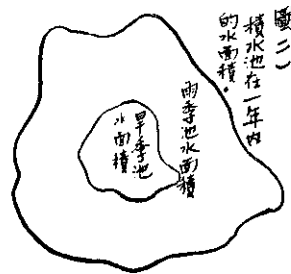 圖二)
積水池在一年內
的水面積。
雨季池水面積
旱季池
水面積